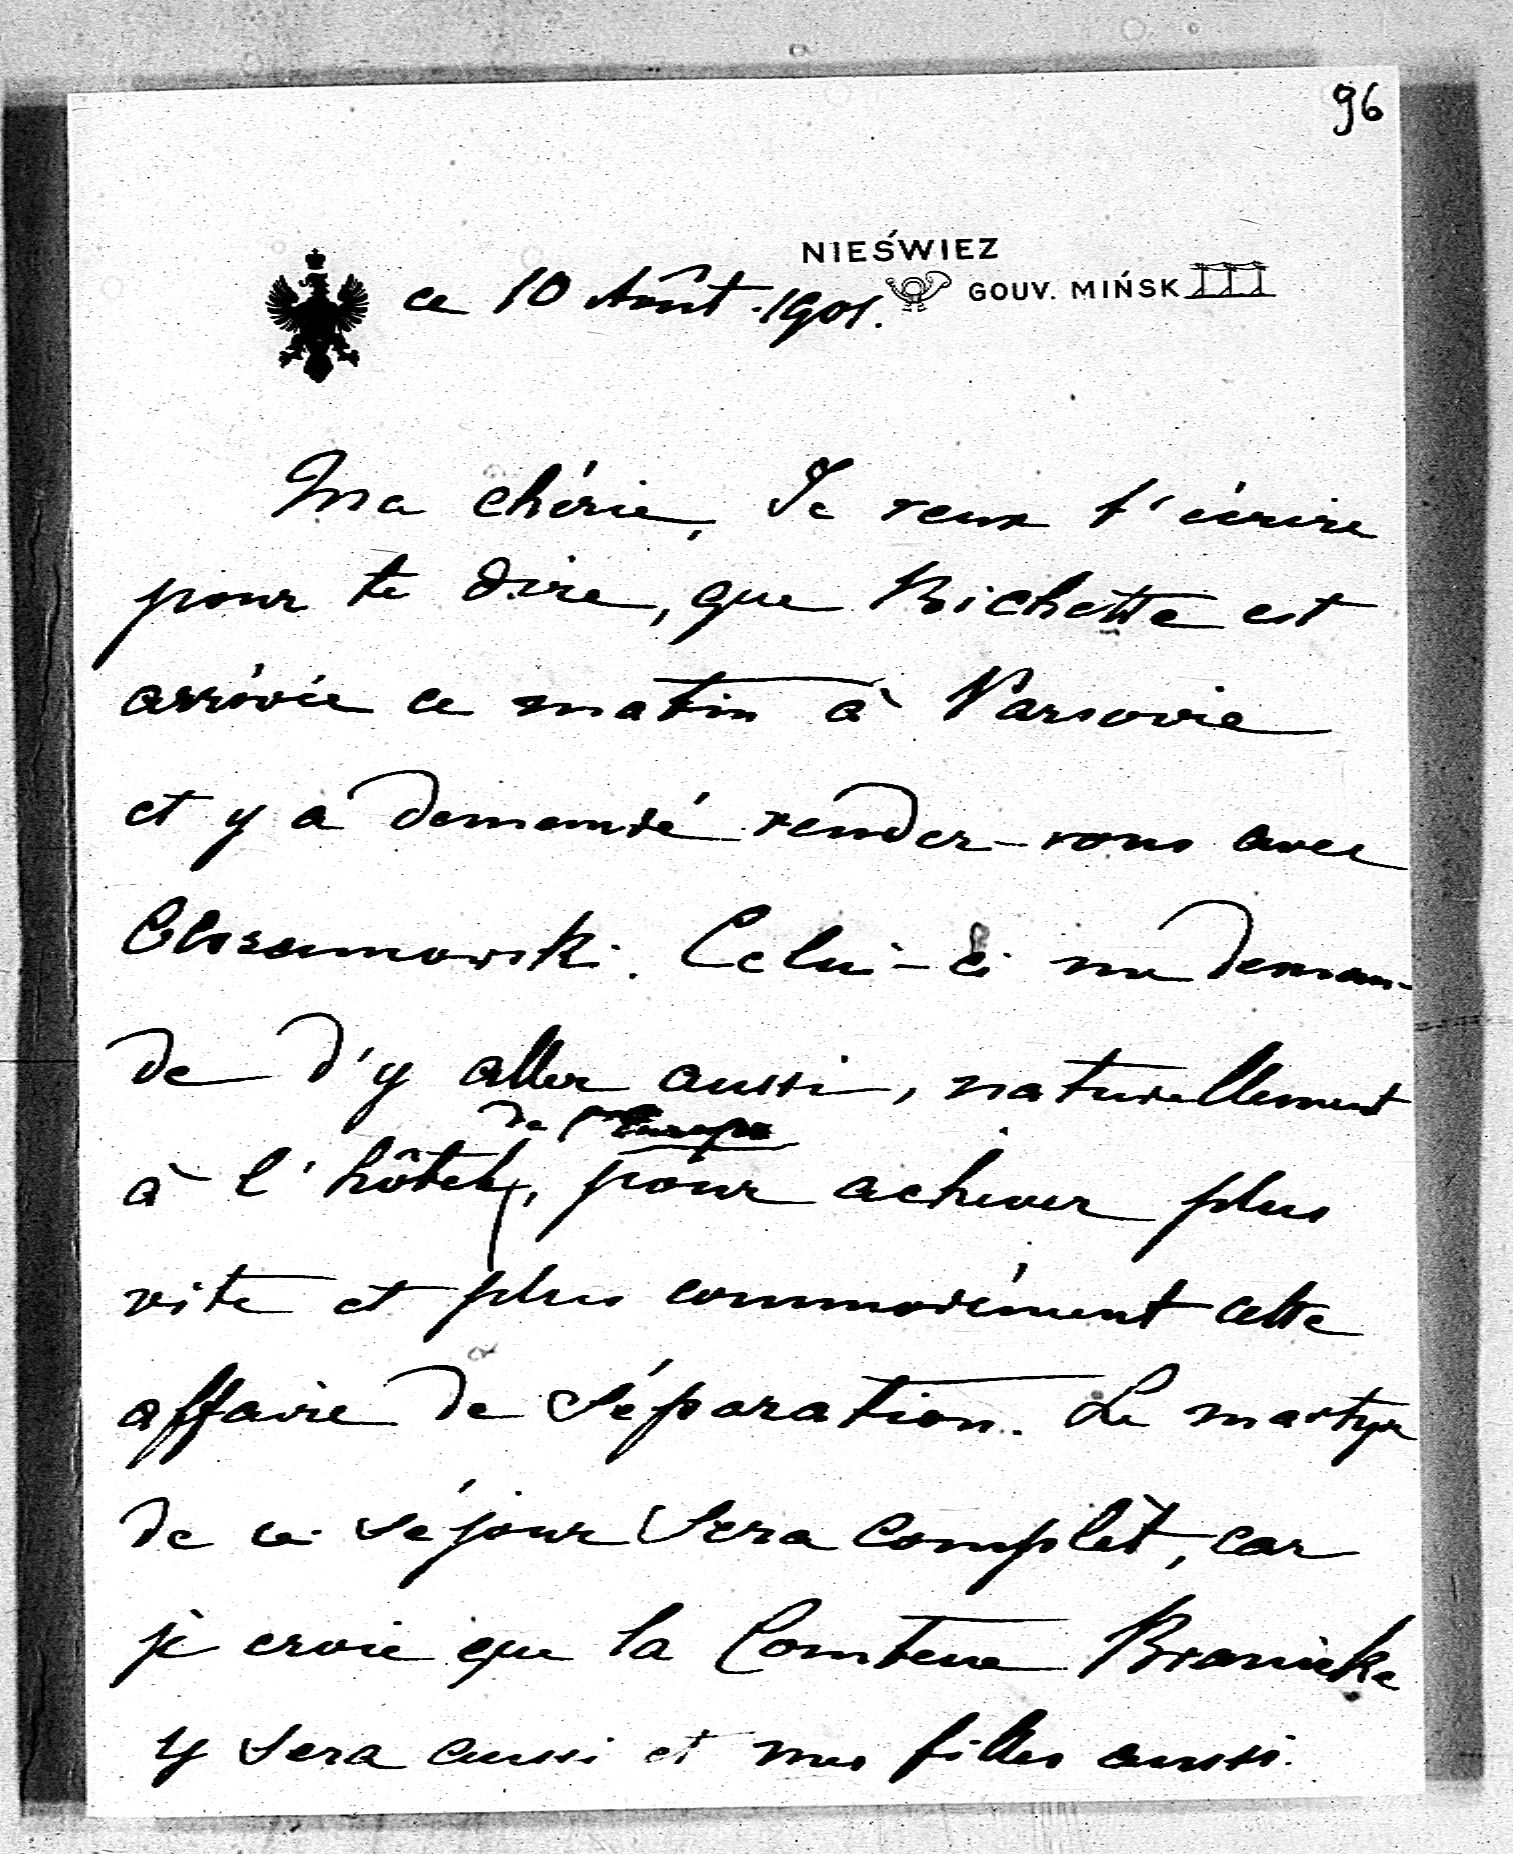 96
NIEŚWIEZ
GOUV. MIŃSK
ce 10 Août 1901.
Ma chérie, Je veux t'écrire
pour te dire, que Bichette est
arrivée ce matin à Varsovie
et y a demandé rendez-vous avec
Chrzanowski. Celui-ci me deman-
de d'y aller aussi, naturellement
de l'Europe
à l'hôtel, pour achever plus
vite et plus commodément cette
affaire de séparation. Le martyr
de ce séjour sera complèt, car
je croie que la Comtesse Branicka
y sera aussi et mes filles aussi.